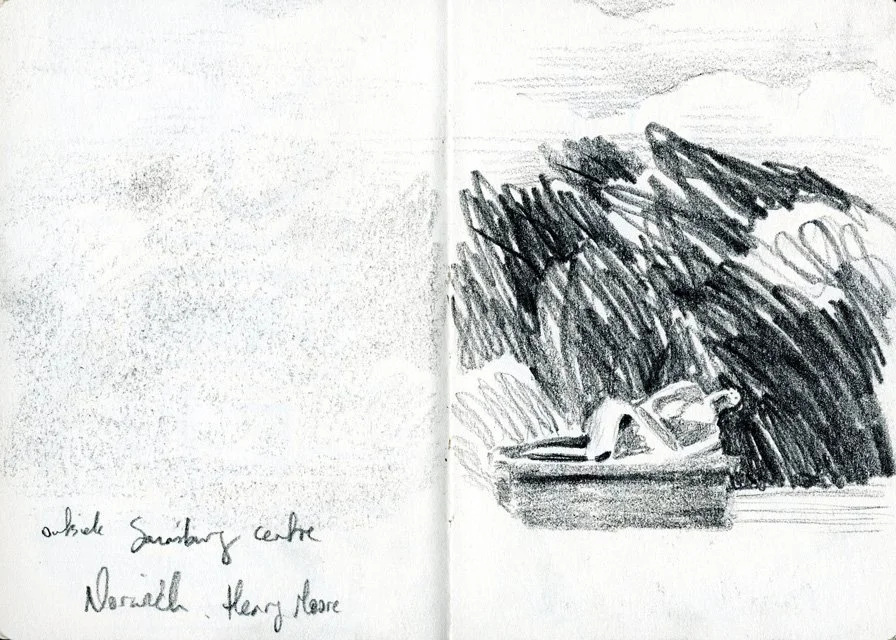 outside Sainsbury centre
Norwich. Henry Moore